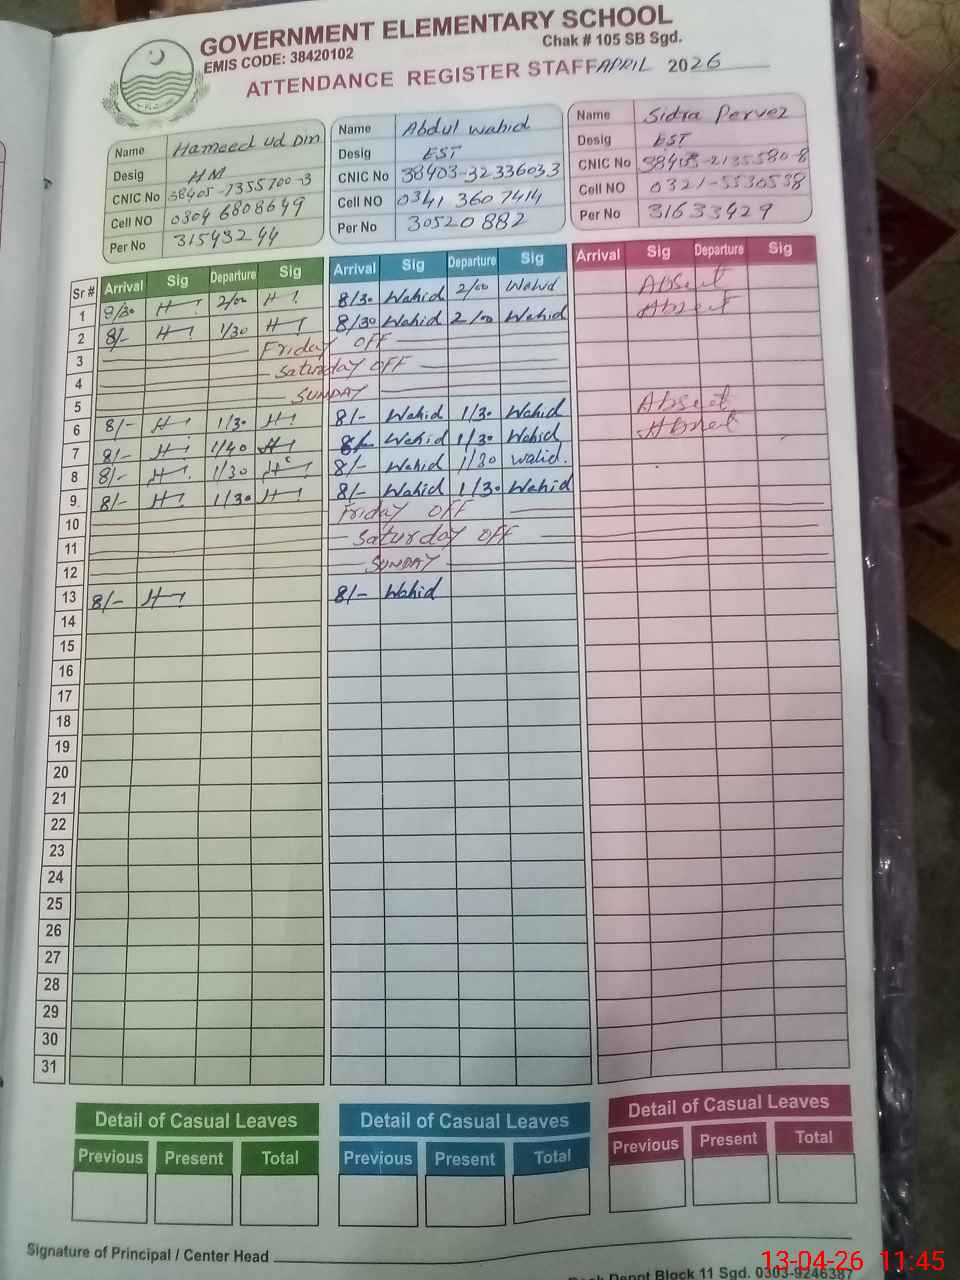 GOVERNMENT ELEMENTARY SCHOOL
EMIS CODE: 38420102 Chak # 105 SB Sgd.
ATTENDANCE REGISTER STAFF APRIL 2026
Name Hameed ud Din
Desig HM
CNIC No 38405-7355700-3
Cell NO 0304 6808649
Per No 31543244
Name Abdul wahid
Desig EST
CNIC No 38403-3233603 3
Cell NO 0341 360 7414
Per No 30520882
Name Sidra Pervez
Desig EST
CNIC No 38403-2135580-8
Cell NO 0321-5530538
Per No 31633429
Sr # Arrival Sig Departure Sig Arrival Sig Departure Sig Arrival Sig Departure Sig
1 8/30 H 2/00 H 8/30 Wahid 2/00 Wahid Absent
2 8/- H 1/30 H 8/30 Wahid 2/00 Wahid Absent
3 Friday OFF
4 Saturday OFF
5 SUNDAY
6 8/- H 1/30 H 8/- Wahid 1/30 Wahid Absent
7 8/- H 1/40 H 8/- Wahid 1/30 Wahid Absent
8 8/- H 1/30 H 8/- Wahid 1/30 Wahid.
9 8/- H 1/30 H 8/- Wahid 1/30 Wahid
10 Friday OFF
11 Saturday OFF
12 SUNDAY
13 8/- H 8/- Wahid
14
15
16
17
18
19
20
21
22
23
24
25
26
27
28
29
30
31
Detail of Casual Leaves Detail of Casual Leaves Detail of Casual Leaves
Previous Present Total Previous Present Total Previous Present Total
Signature of Principal / Center Head
Depot Block 11 Sgd. 0303-9246387
13-04-26 11:45